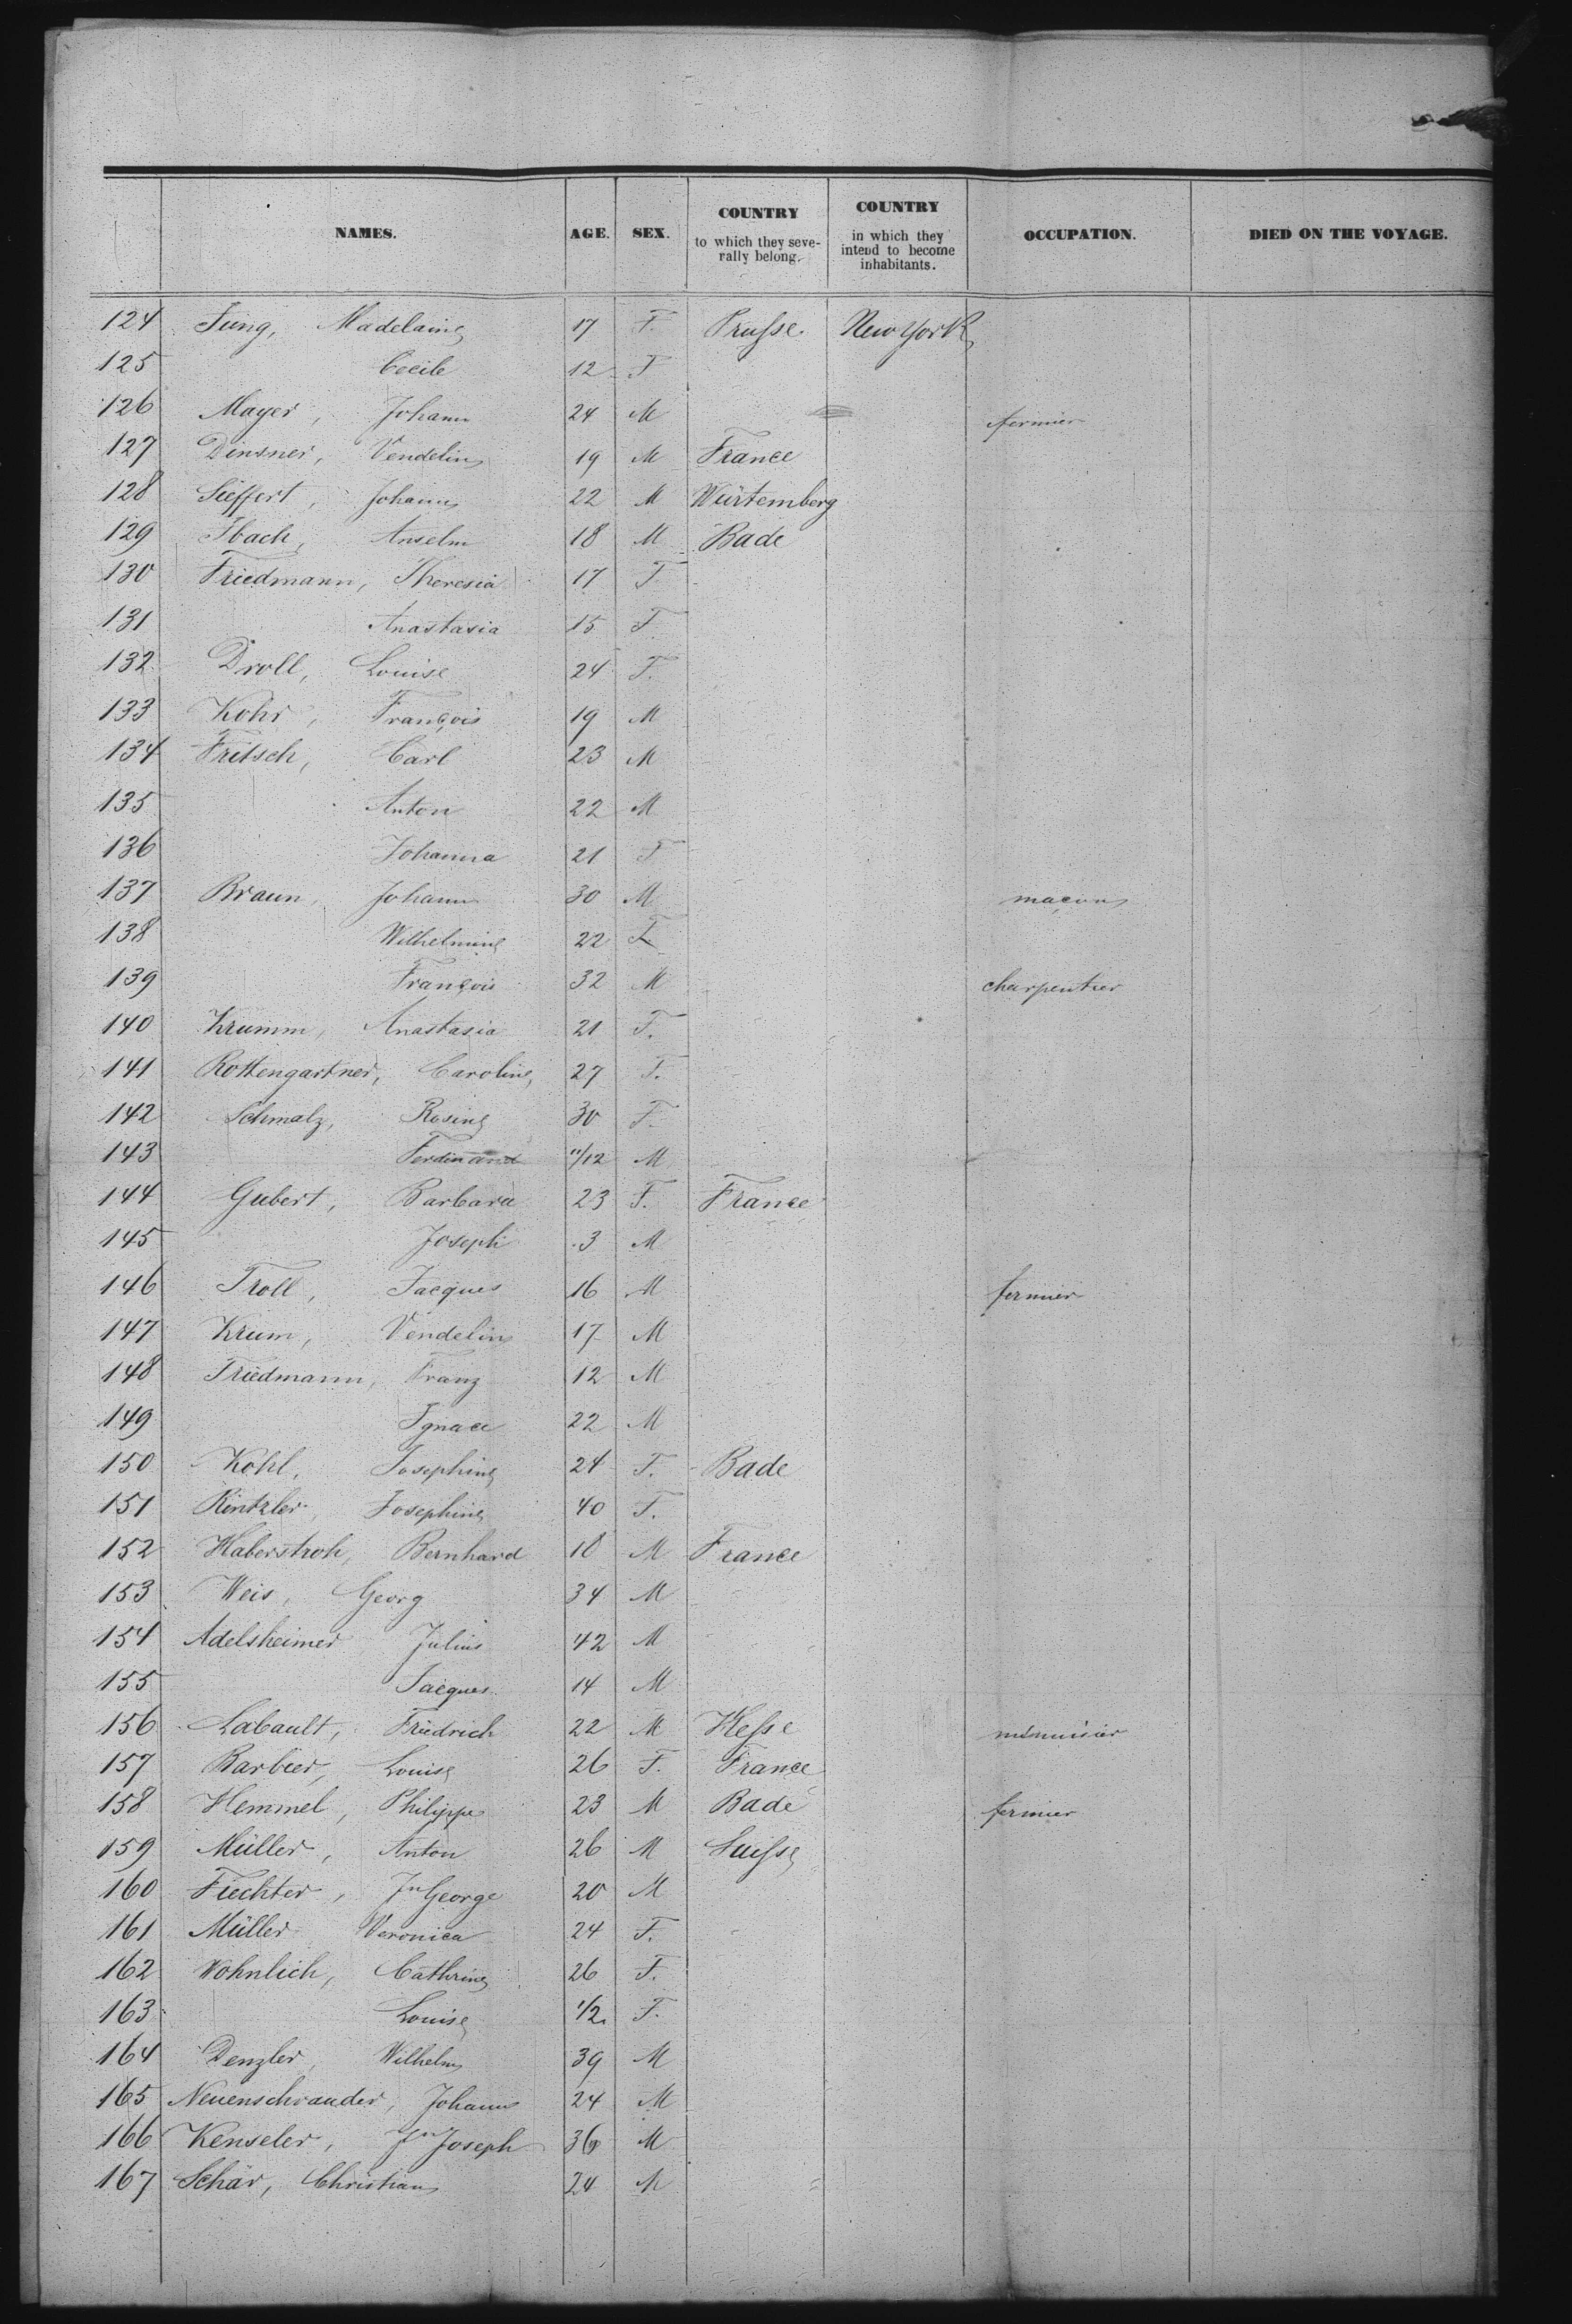 NAMES. AGE. SEX. COUNTRY to which they severally belong. COUNTRY in which they intend to become inhabitants. OCCUPATION. DIED ON THE VOYAGE.
124 Jung, Madelaine 17 F. Prusse New York
125 Cecile 12 F
126 Mayer, Johann 24 M fermier
127 Dinsner, Vendelin 19 M France
128 Sieffert, Johann 22 M Würtemberg
129 Ibach, Anselm 18 M Bade
130 Friedmann, Theresia 17 F
131 Anastasia 15 F
132 Droll, Louise 24 F.
133 Kohr, François 19 M
134 Fritsch, Carl 23 M
135 Anton 22 M
136 Johanna 21 F
137 Braun, Johann 30 M maçon
138 Wilhelmine 22 F
139 François 32 M charpentier
140 Krumm, Anastasia 21 F.
141 Rottengartner, Caroline 27 F.
142 Schmalz, Rosine 30 F.
143 Ferdinand 11/12 M
144 Gubert, Barbara 23 F. France
145 Joseph 3 M
146 Troll, Jacques 16 M fermier
147 Krum, Vendelin 17 M
148 Friedmann, Franz 12 M
149 Ignace 22 M
150 Kohl, Josephine 24 F. Bade
151 Kintzler, Josephine 40 F.
152 Haberstroh, Bernhard 18 M France
153 Weis, Georg 34 M
154 Adelsheimer Julius 42 M
155 Jacques 14 M
156 Labault, Friedrich 22 M Hesse menuisier
157 Barbier, Louise 26 F. France
158 Hemmel, Philippe 23 M Bade fermier
159 Müller, Anton 26 M Suisse
160 Fiechter, Jn George 20 M
161 Müller Veronica 24 F.
162 Wohnlich, Cathrine 26 F.
163 Louise 1/2 F.
164 Denzler, Wilhelm 39 M
165 Neuenschwander, Johann 24 M
166 Kenseler, Jn Joseph 36 M
167 Schär, Christian 24 M